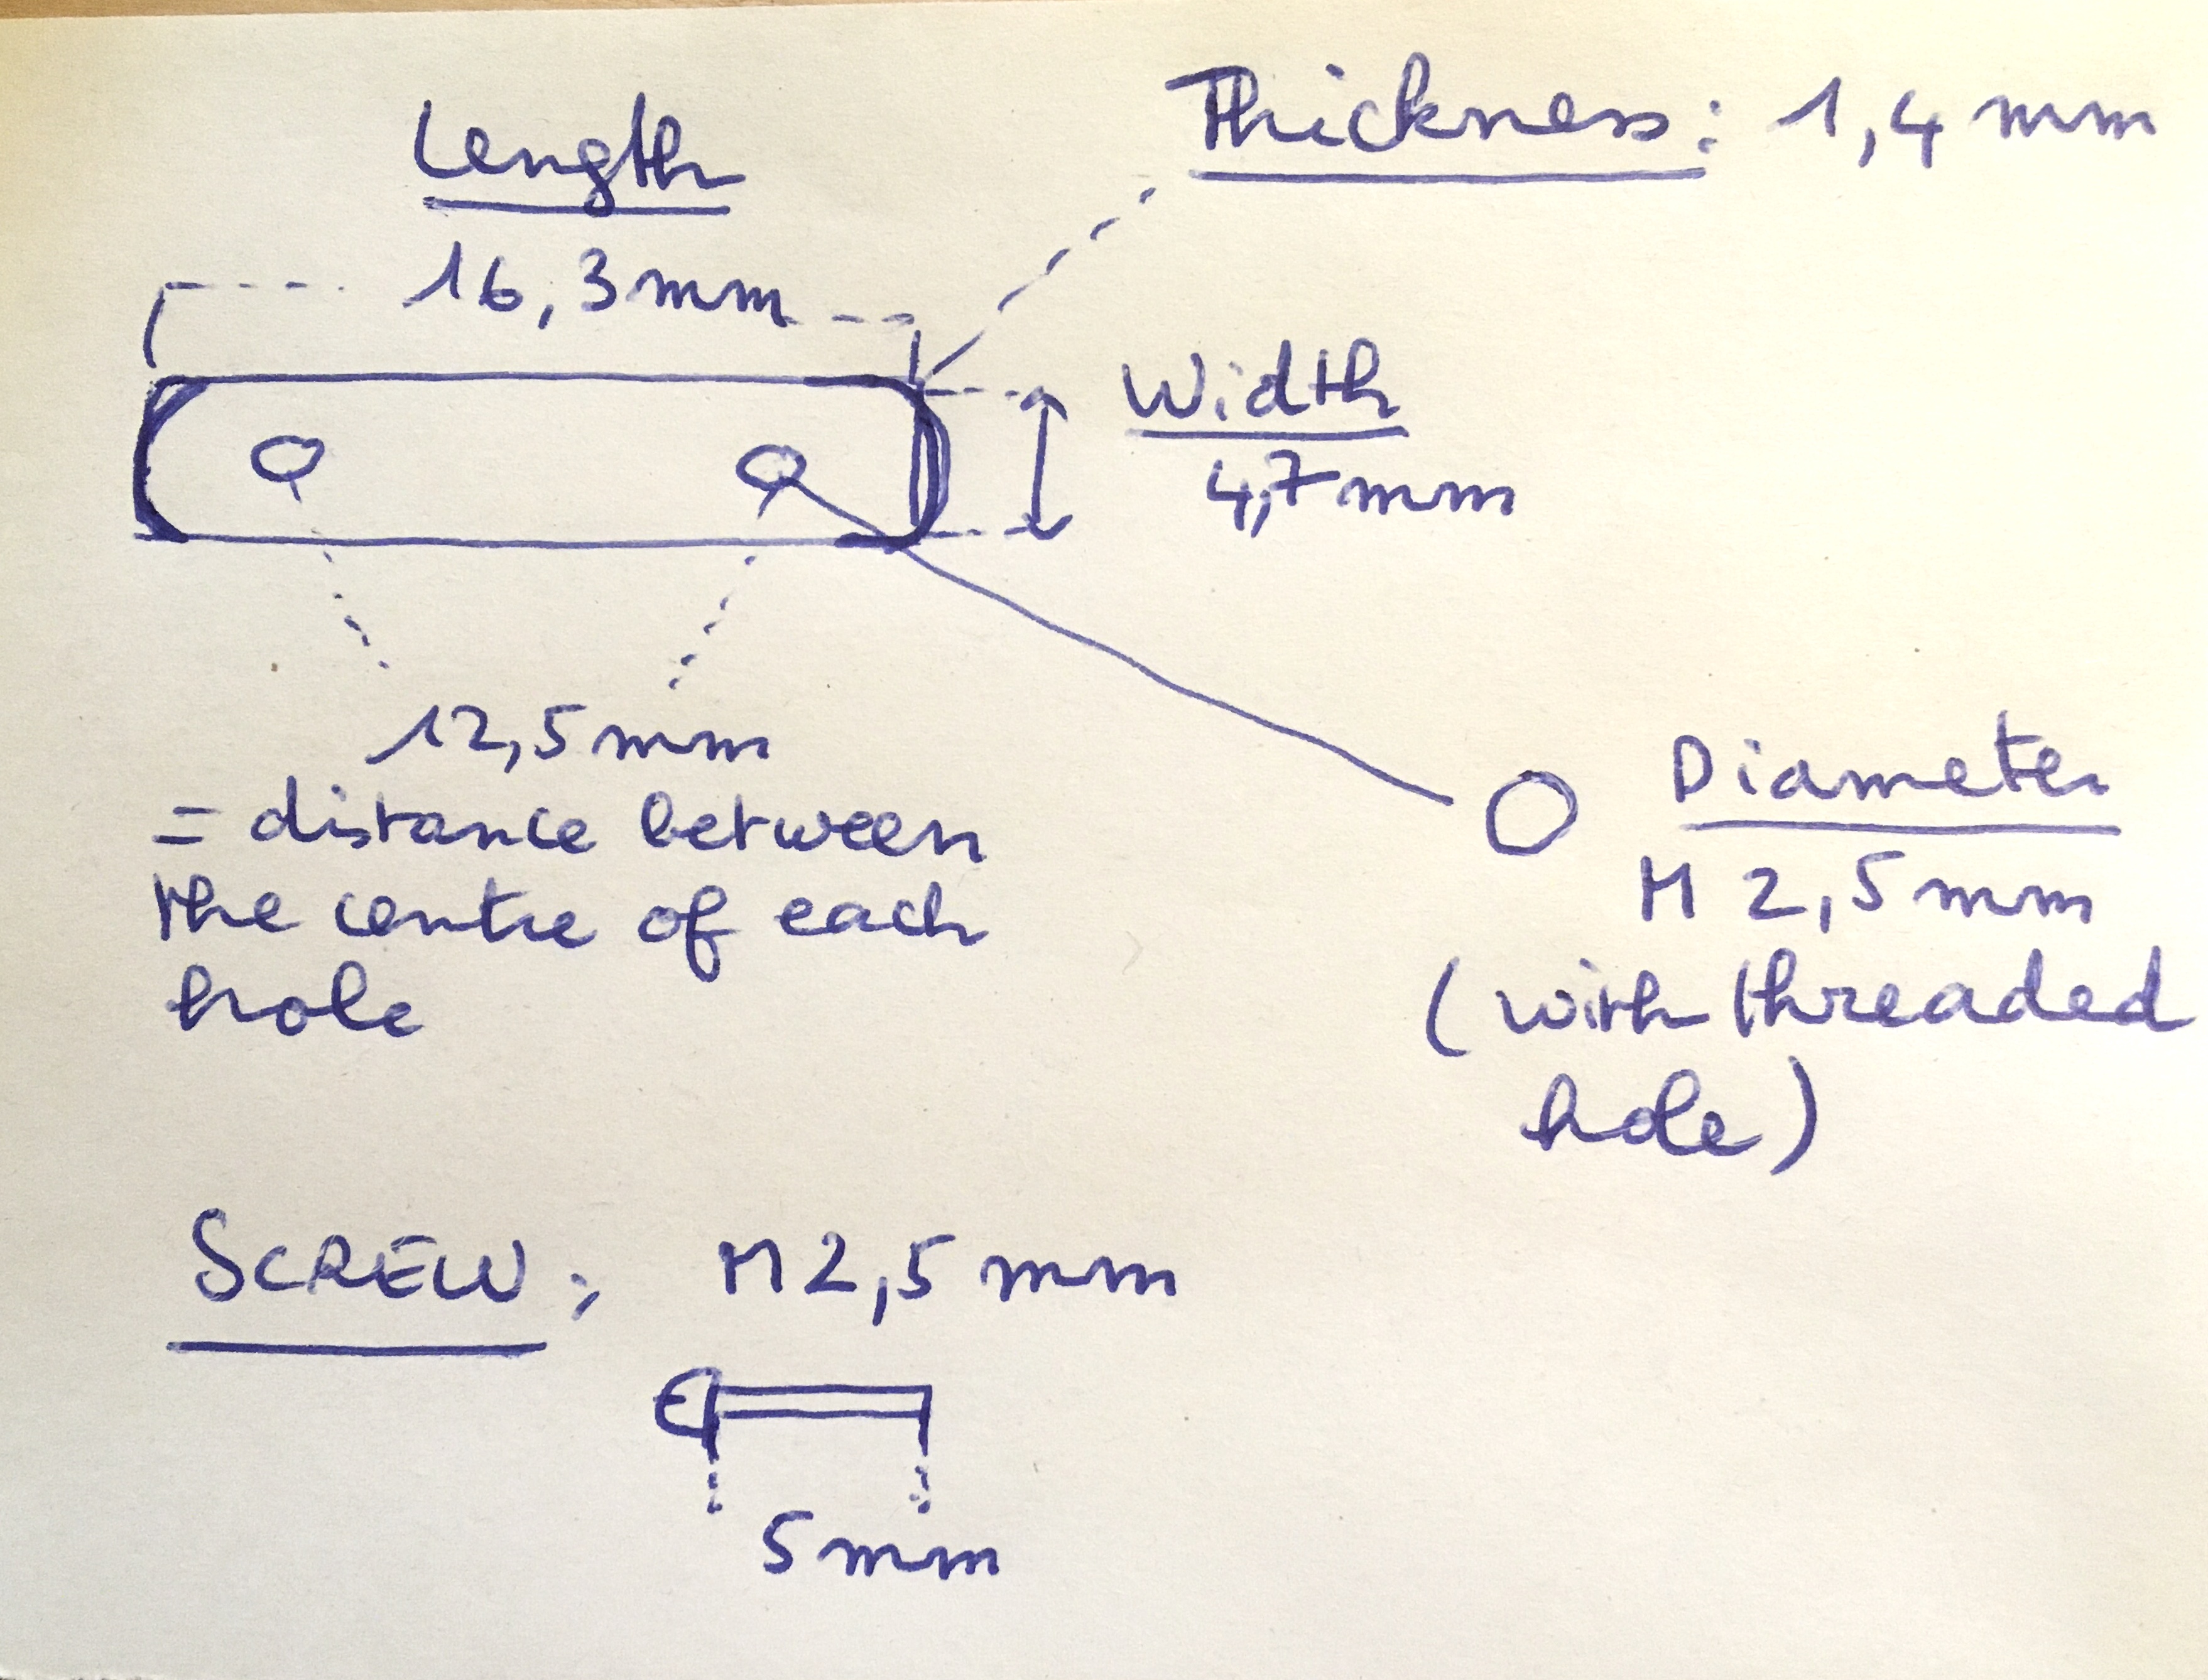 Length
16,3mm
Thickness: 1,4mm
Width
4,7mm
12,5mm
= distance between
the centre of each
hole
Diameter
M 2,5mm
(with threaded
hole)
SCREW: M2,5mm
5mm